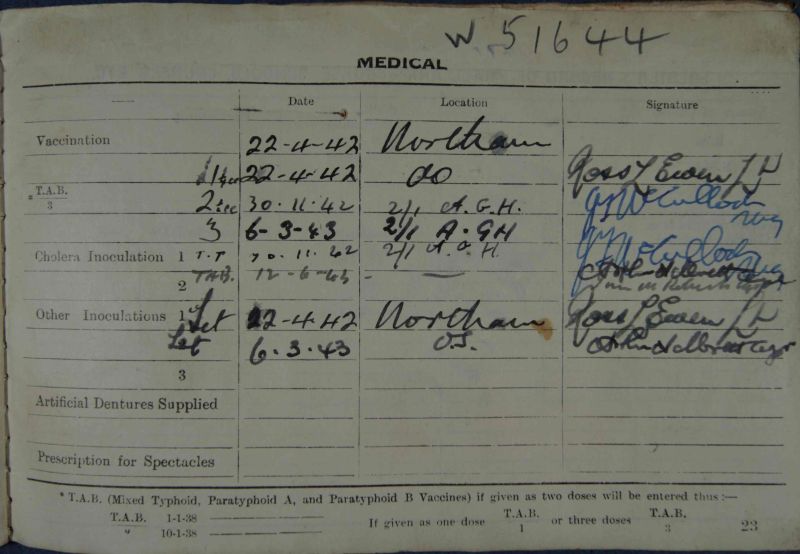 W 51644
MEDICAL
Date Location Signature
Vaccination 22-4-42 Northam
22-4-42 do Ross L Ewen
* T.A.B. / 3 2 30.11.42 2/1 A.G.H. McCulloch
3 6-3-43 2/1 A.G.H
Cholera Inoculation 1 T.T 30.11.42 2/1 A.G.H. McCulloch
2 T.A.B. 12-6-43 —
Other Inoculations 1 Tet 22-4-42 Northam Ross L Ewen
Tet 6.3.43
3
Artificial Dentures Supplied
Prescription for Spectacles
* T.A.B. (Mixed Typhoid, Paratyphoid A, and Paratyphoid B Vaccines) if given as two doses will be entered thus :—
T.A.B. 1-1-38 If given as one dose T.A.B. / 1 or three doses T.A.B. / 3
" 10-1-38
23